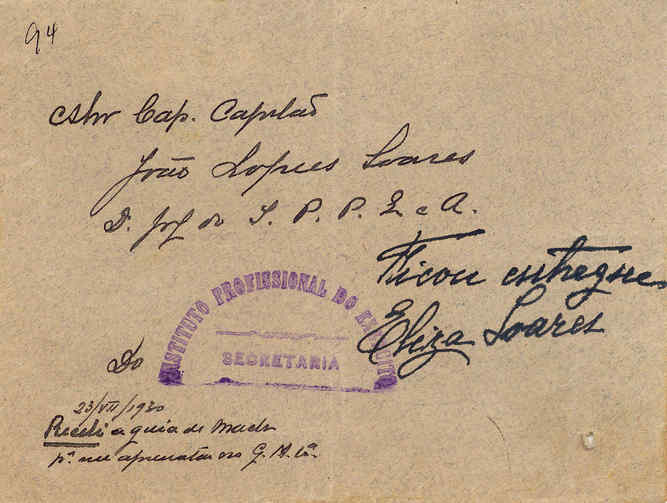 94
Cap. Capelão
João Lopes Soares
D. do I. P. P. E. e A.
Ficou entregue
INSTITUTO PROFISSIONAL DO EXERCITO
SECRETARIA
Eliza Soares
Do
23/VII/1930
Recebi a guia de
pª me apresentar no G.